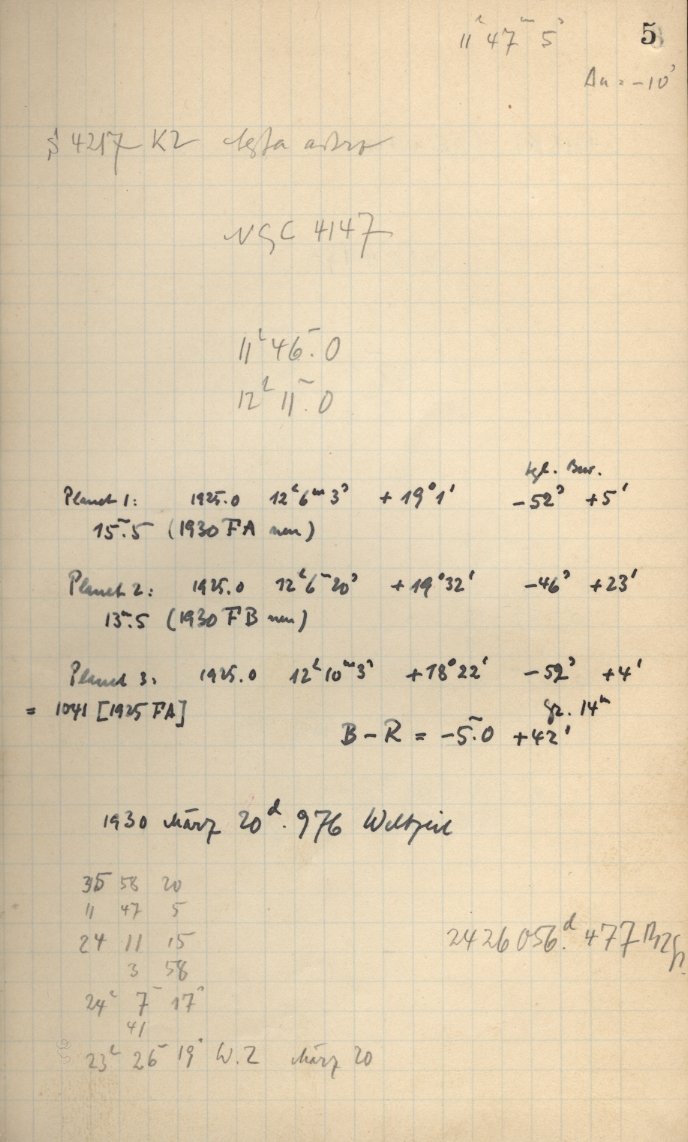 11ʰ 47ᵐ 5ˢ 5
Δu = -10ˢ
4217 K2
NGC 4147
11ʰ 46ᵐ.0
12ʰ 11ᵐ.0
tgl. Bew.
Planet 1: 1925.0 12ʰ6ᵐ3ˢ +19°1' -52ˢ +5'
15ᵐ.5 (1930 FA neu)
Planet 2: 1925.0 12ʰ6ᵐ20ˢ +19°32' -46ˢ +23'
13ᵐ.5 (1930 FB neu)
Planet 3: 1925.0 12ʰ10ᵐ3ˢ +18°22' -52ˢ +4'
= 1041 [1925 FA] Gr. 14ᵐ
B-R = -5ᵐ.0 +42'
1930 März 20ᵈ.976 Weltzeit
35 58 20
11 47 5
24 11 15
3 58
24ʰ 7ᵐ 17ˢ
41
23ʰ 26ᵐ 19ˢ W.Z März 20
2426056ᵈ.477